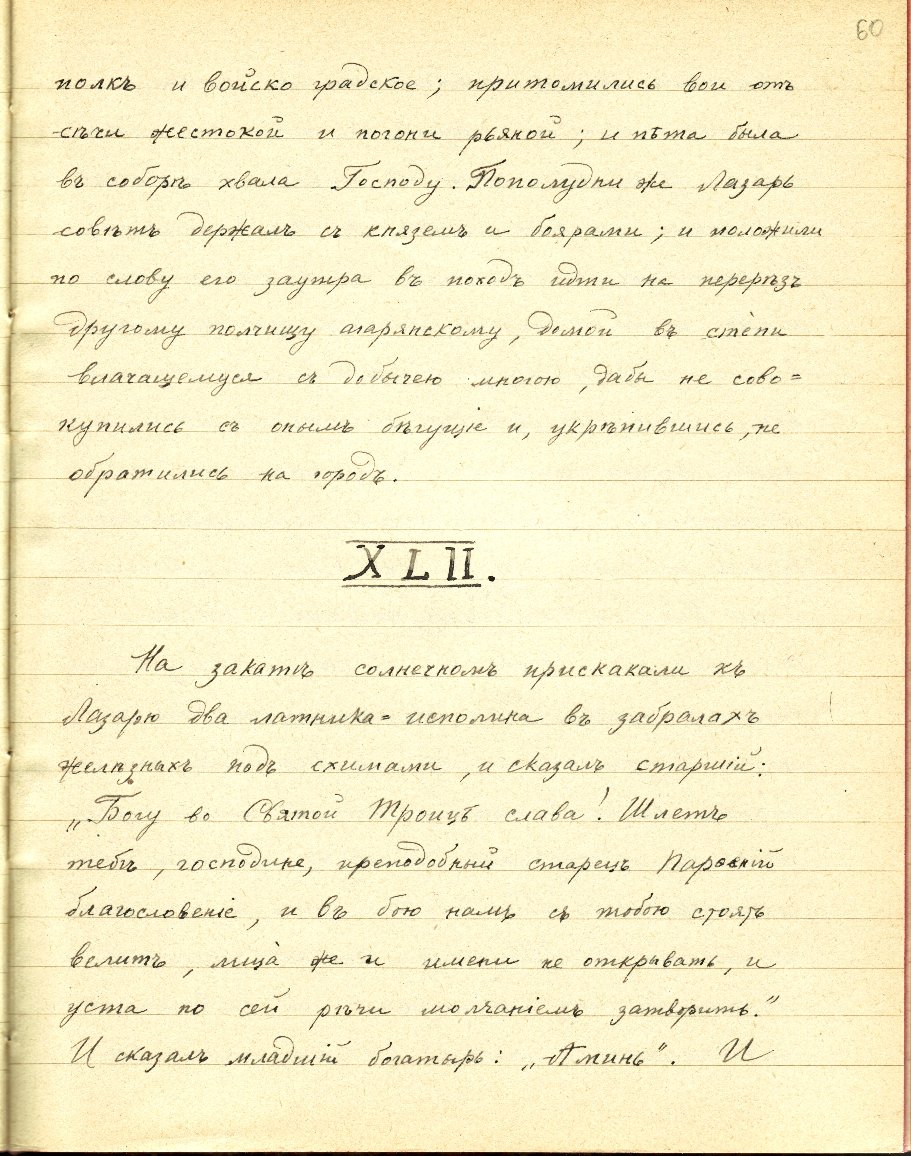 60
полкъ и войско градское; притомились вои отъ
сѣчи жестокой и погони рьяной; и пѣта была
въ соборѣ хвала Господу. Пополудни же Лазарь
совѣтъ держалъ съ княземъ и боярами; и положили
по слову его заутра въ походъ идти на перерѣзъ
другому полчищу агарянскому, домой въ степи
влачащемуся съ добычею многою, дабы не сово=
купились съ онымъ бѣгущіе и, укрѣпившись, не
обратились на городъ.
XLII.
На закатѣ солнечномъ прискакали къ
Лазарю два латника=исполина въ забралахъ
желѣзныхъ подъ схимами, и сказалъ старшій:
„Богу во Святой Троицѣ слава! Шлетъ
тебѣ, господине, преподобный старецъ Парѳеній
благословеніе, и въ бою намъ съ тобою стоять
велитъ, лица же и имени не открывать, и
уста по сей рѣчи молчаніемъ затворить."
И сказалъ младшій богатырь: „Аминь". И